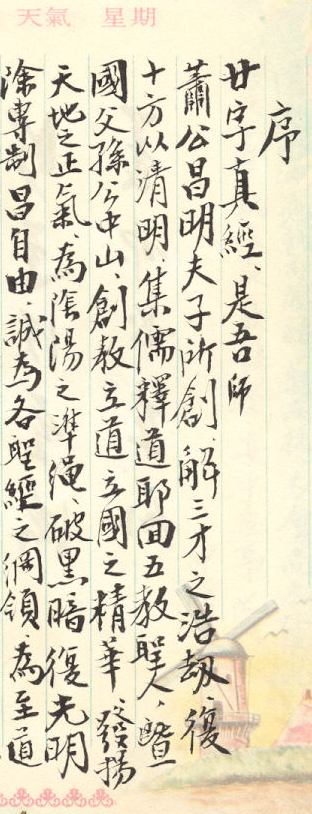 天氣　星期
序
廿字真經、是吾師
蕭公昌明夫子所創、解三才之浩劫、復
十方以清明、集儒釋道耶回五教聖人、暨
國父孫公中山、創教立道立國之精華、發揚
天地之正氣、為陰陽之準繩、破黑暗復光明
除專制昌自由、誠為各聖經之綱領、為至道